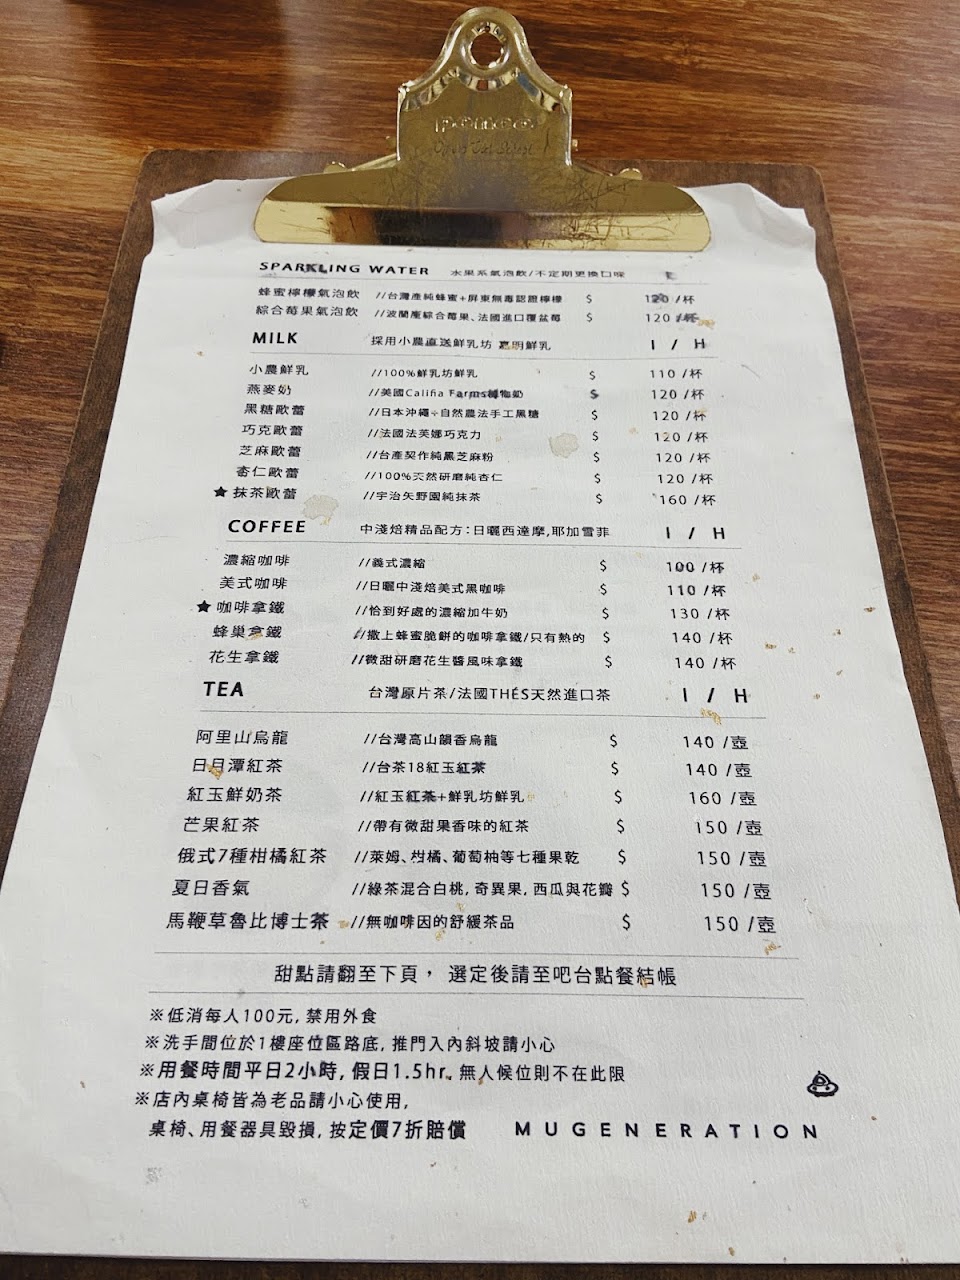 penco
SPARKLING WATER 水果系氣泡飲/不定期更換口味 I
蜂蜜檸檬氣泡飲 //台灣產純蜂蜜+屏東無毒認證檸檬 $ 120 /杯
綜合莓果氣泡飲 //波蘭產綜合莓果、法國進口覆盆莓 $ 120 /杯
MILK 採用小農直送鮮乳坊 嘉明鮮乳 I / H
小農鮮乳 //100%鮮乳坊鮮乳 $ 110 /杯
燕麥奶 //美國Califia Farms植物奶 $ 120 /杯
黑糖歐蕾 //日本沖繩÷自然農法手工黑糖 $ 120 /杯
巧克歐蕾 //法國法芙娜巧克力 $ 120 /杯
芝麻歐蕾 //台產契作純黑芝麻粉 $ 120 /杯
杏仁歐蕾 //100%天然研磨純杏仁 $ 120 /杯
★抹茶歐蕾 //宇治矢野園純抹茶 $ 160 /杯
COFFEE 中淺焙精品配方:日曬西達摩,耶加雪菲 I / H
濃縮咖啡 //義式濃縮 $ 100 /杯
美式咖啡 //日曬中淺焙美式黑咖啡 $ 110 /杯
★咖啡拿鐵 //恰到好處的濃縮加牛奶 $ 130 /杯
蜂巢拿鐵 //撒上蜂蜜脆餅的咖啡拿鐵/只有熱的 $ 140 /杯
花生拿鐵 //微甜研磨花生醬風味拿鐵 $ 140 /杯
TEA 台灣原片茶/法國THÉS天然進口茶 I / H
阿里山烏龍 //台灣高山韻香烏龍 $ 140 /壺
日月潭紅茶 //台茶18紅玉紅茶 $ 140 /壺
紅玉鮮奶茶 //紅玉紅茶+鮮乳坊鮮乳 $ 160 /壺
芒果紅茶 //帶有微甜果香味的紅茶 $ 150 /壺
俄式7種柑橘紅茶 //萊姆、柑橘、葡萄柚等七種果乾 $ 150 /壺
夏日香氣 //綠茶混合白桃, 奇異果, 西瓜與花瓣 $ 150 /壺
馬鞭草魯比博士茶 //無咖啡因的舒緩茶品 $ 150 /壺
甜點請翻至下頁， 選定後請至吧台點餐結帳
※低消每人100元, 禁用外食
※洗手間位於1樓座位區路底, 推門入內斜坡請小心
※用餐時間平日2小時, 假日1.5hr, 無人候位則不在此限
※店內桌椅皆為老品請小心使用,
桌椅、用餐器具毀損, 按定價7折賠償 MUGENERATION